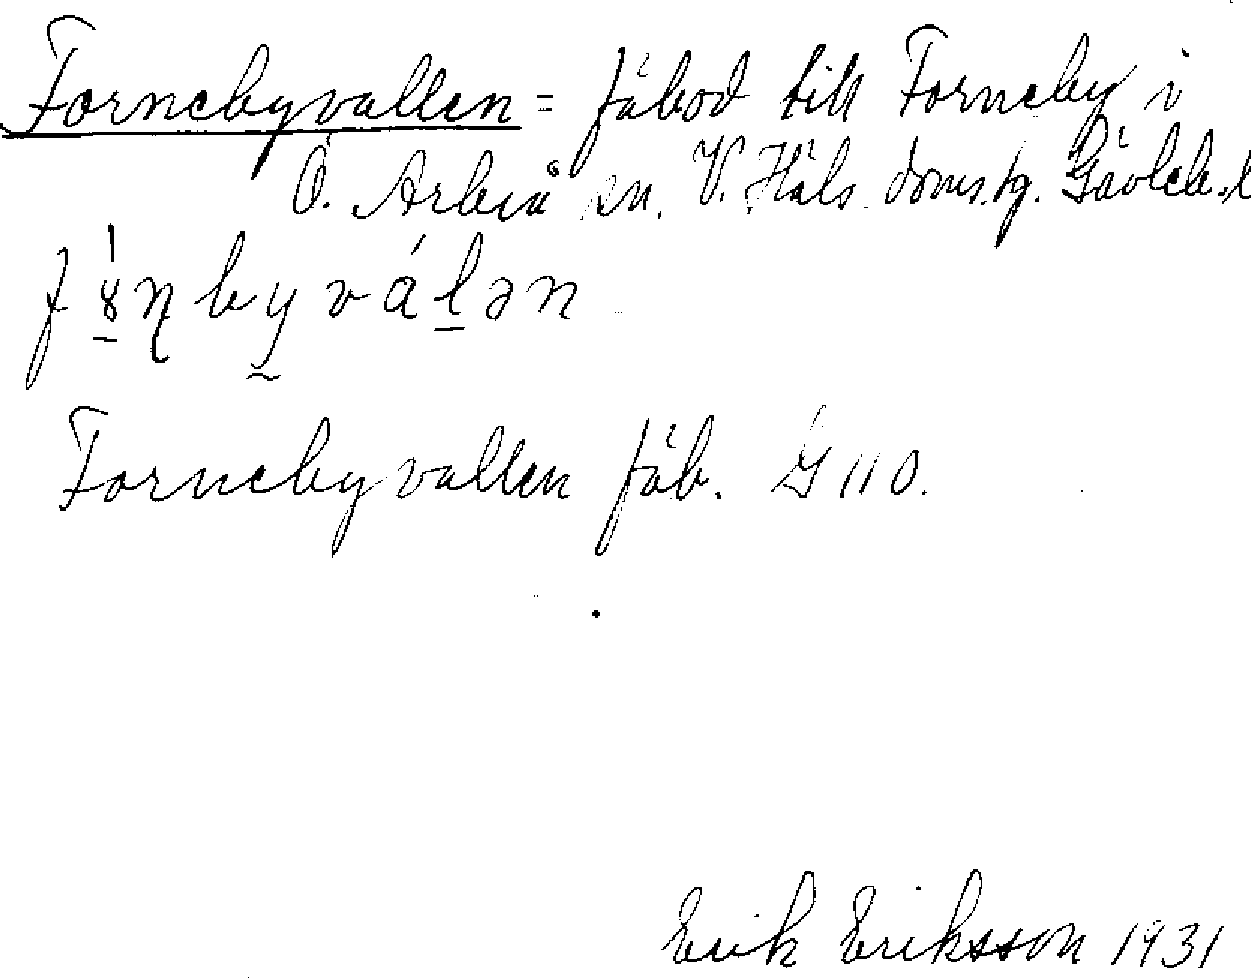 Fornebyvallen = fäbod till Forneby i
Ö. Arbrå sn. V. Häls. doms.tg. Gävleb.l
Fornebyvallen fäb. G 110.
Erik Eriksson 1931